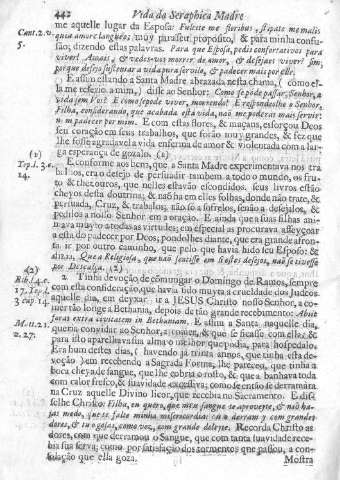 442 Vida da Seraphica Madre
me aquelle lugar da Esposa: Fulcite me floribus, stipate me malis
Cant. 2. v. 5.
quia amore langueo; muy para seu proposito, & para minha confu-
são, dizendo estas palavras. Para que Esposa, pedis confortativos para
viver? Amais, & vedes-vos morrer de amor, & desejais viver? sim,
porque desejo sustentar a vida para servilo, & padecer mais por elle.
E assim estando a Santa Madre abrazada nesta chama, (como el-
la me refezio a mim,) disse ao Senhor: Como se póde passar, Senhor, a
vida sem Vos? E como se póde viver, morrendo? E respondeolhe o Senhor,
Filha, considerando, que acabada esta vida, não me poderás mais servir:
nem padecer por mim. E com estas flores, & maçans, esforçou Deos
seu coração em seus trabalhos, que foraõ muy grandes, & fez que
lhe fosse agradavel a vida enferma de amor & violentada com a lar-
ga esperança de gozalo. (1)
(1)
Trp. l. 3. c. 14.
E conforme aos bem, que a Santa Madre experimentava nos tra-
balhos, era o desejo de persuadir tambem a todo o mundo, os fru-
tos & thezouros, que nelles estavão escondidos. seus livros estão
cheyos desta doutrina; & não ha em elles folhas, donde não trate, &
persuada, Cruz, & trabalhos, não só a sofrelos, senão a desejalos, &
pedilos a nosso Senhor em a oração. E ainda que a suas filhas ani-
mava muyto a todas as virtudes; em especial as procurava affeyçoar
a esta do padecer por Deos; pondolhes diante, que era grande afron-
ta ir por outro caminho, que pelo que havia hido seu Esposo: &
dizia, Que a Religiosa, que não sentisse em si estes desejos, não se tivesse
por Descalça. (2)
(2)
Rib. l. 4. c. 17. Tep. l. 3 cap 14.
2. Tinha devoção de commungar o Domingo de Ramos, sempre
com esta consideração que havia sido muyta a crueldade dos Judeos
aquelle dia, em deyxar ir a JESUS Christo nosso Senhor, a co-
mer tão longe a Bethania, depois de tão grande recebimento: Abiit
foras extra civitatem in Bethaniam. E assim a Santa naquelle dia,
M. 11. 21. v. 27.
queria convidar ao Senhor, a comer, & que se ficasse com ella: &
para isto aparelhava sua alma o melhor que podia, para hospedalo.
Era hum destes dias, (havendo já trinta annos, que tinha esta de-
voção) em recebendo a Sagrada Forma, lhe pareceu, que tinha a
boca cheya de sangue, que lhe cobria o rosto, & que a banhava toda
com calor fresco, & suavidade excessiva; como se então se derramára
na Cruz aquelle Divino licor, que recebia no Sacramento. E disse-
selhe Christo: Filha, eu quero, que meu sangue te aproveyte, & não ha-
jas medo, que te falte minha misericordia: eu o derramey com grandes
dores, & tu o gozas, como vez, com grande deleyte. Recorda Christo as
dores, com que derramou o Sangue, que com tanta suavidade rece-
bia sua serva; como por satisfação dos tormentos que passou, a con-
solação que ella goza. Mostra